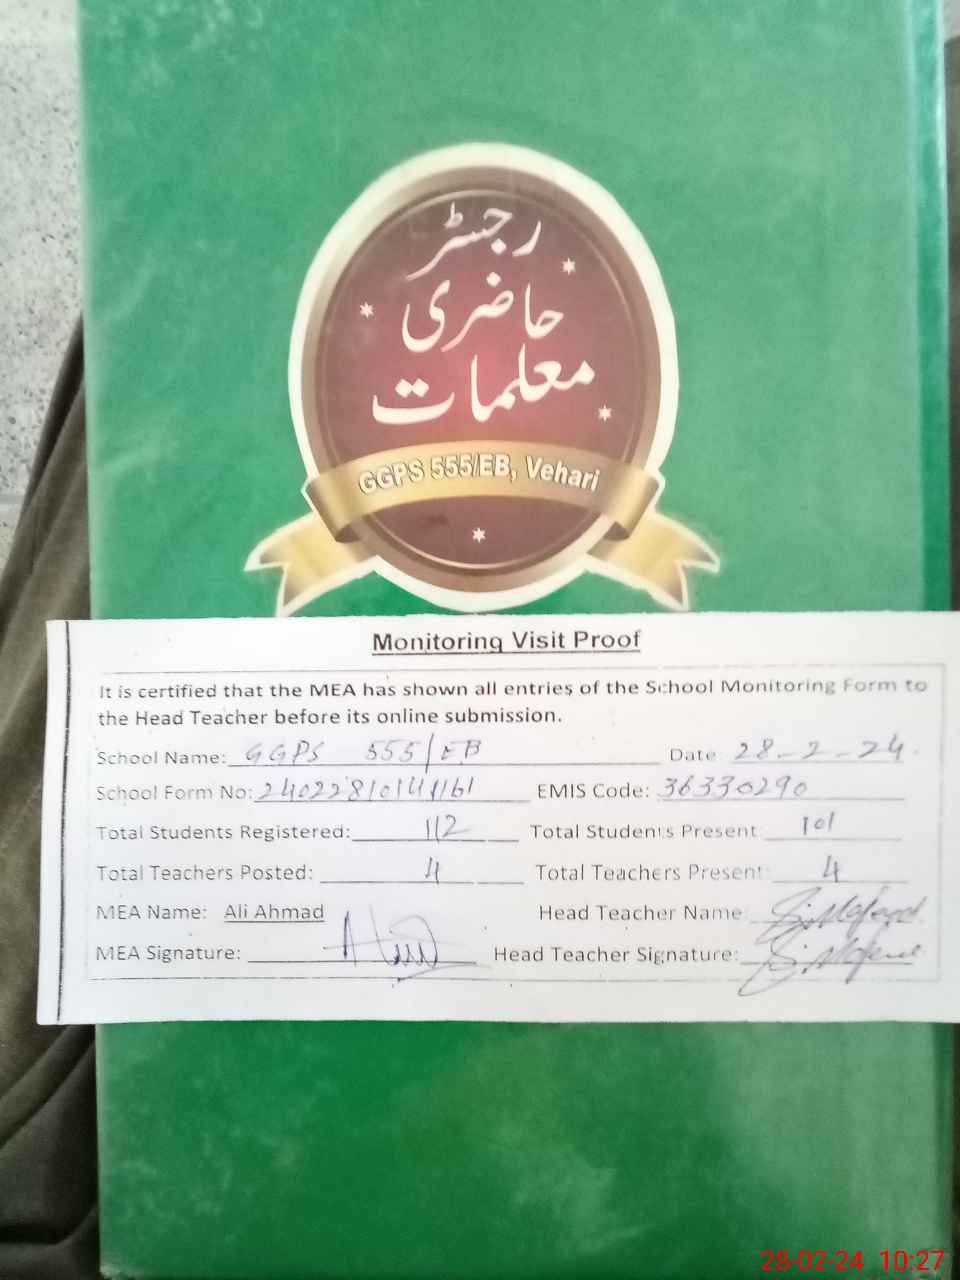 رجسٹر
حاضری
معلمات
GGPS 555/EB, Vehari
Monitoring Visit Proof
It is certified that the MEA has shown all entries of the School Monitoring Form to
the Head Teacher before its online submission.
School Name: GGPS 555/EB Date 28-2-24.
School Form No: EMIS Code: 36330290
Total Students Registered: 112 Total Students Present: 101
Total Teachers Posted: 4 Total Teachers Present: 4
MEA Name: Ali Ahmad Head Teacher Name:
MEA Signature: Head Teacher Signature:
28-02-24 10:27